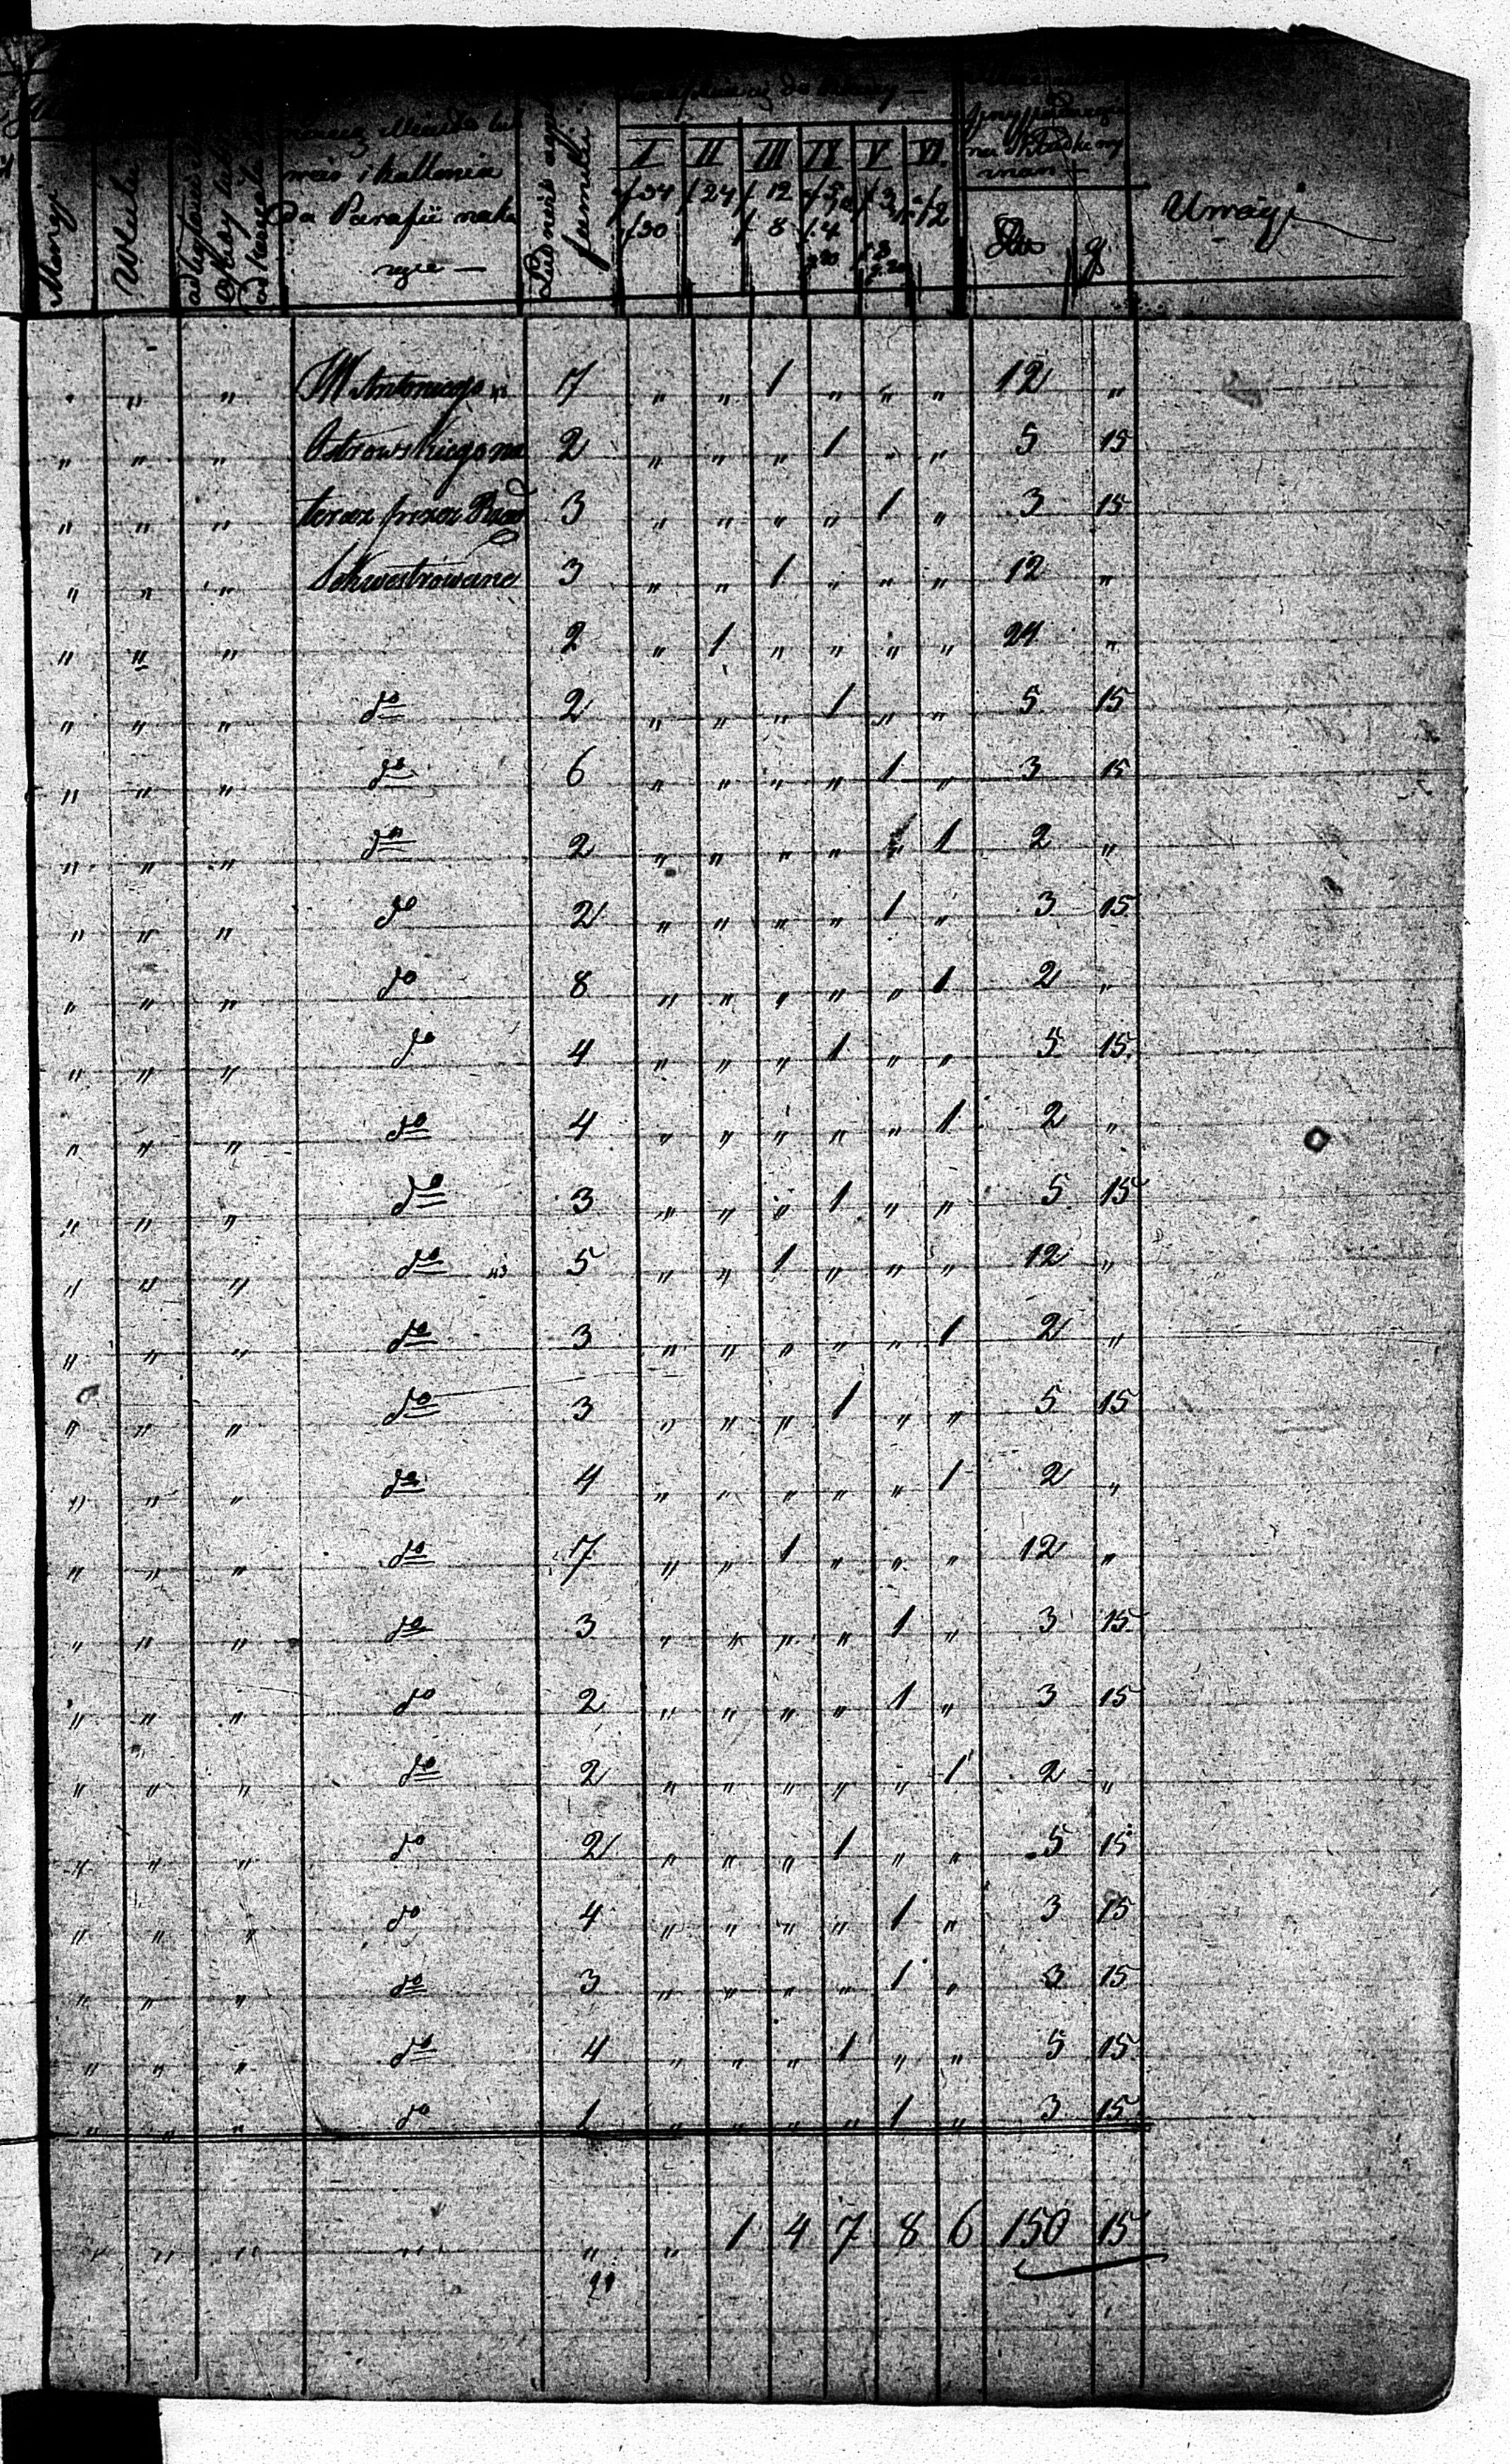 do klassy
I II III IV V VI
Morgi Włuki
wsió i Kollonia
do Parafii nale
żące —
Ludność
familii
f 54 f 24 f 12 f 5 f 3 f 2
f 30 f 8 f 4
Uwagi
" " " W Antoniego 7 " " 1 " " " 12 "
" " " Ostrowskiego na 2 " " " 1 " " 5 15
" " " teraz przez Rząd 3 " " " " 1 " 3 15
" " " Sekwestrowane 3 " " 1 " " " 12 "
" " " 2 " 1 " " " " 24 "
" " " do 2 " " " 1 " " 5 15
" " " do 6 " " " " 1 " 3 15
" " " do 2 " " " " " 1 2 "
" " " do 2 " " " " 1 " 3 15
" " " do 8 " " " " " 1 2 "
" " " do 4 " " " 1 " " 5 15
" " " do 4 " " " " " 1 2 "
" " " do 3 " " " 1 " " 5 15
" " " do 5 " " 1 " " " 12 "
" " " do 3 " " " " " 1 2 "
" " " do 3 " " " 1 " " 5 15
" " " do 4 " " " " " 1 2 "
" " " do 7 " " 1 " " " 12 "
" " " do 3 " " " " 1 " 3 15
" " " do 2 " " " " 1 " 3 15
" " " do 2 " " " " " 1 2 "
" " " do 2 " " " 1 " " 5 15
" " " do 4 " " " " 1 " 3 15
" " " do 3 " " " " 1 " 3 15
" " " do 4 " " " 1 " " 5 15
" " " do 1 " " " " 1 " 3 15
" " " " " " 1 4 7 8 6 150 15